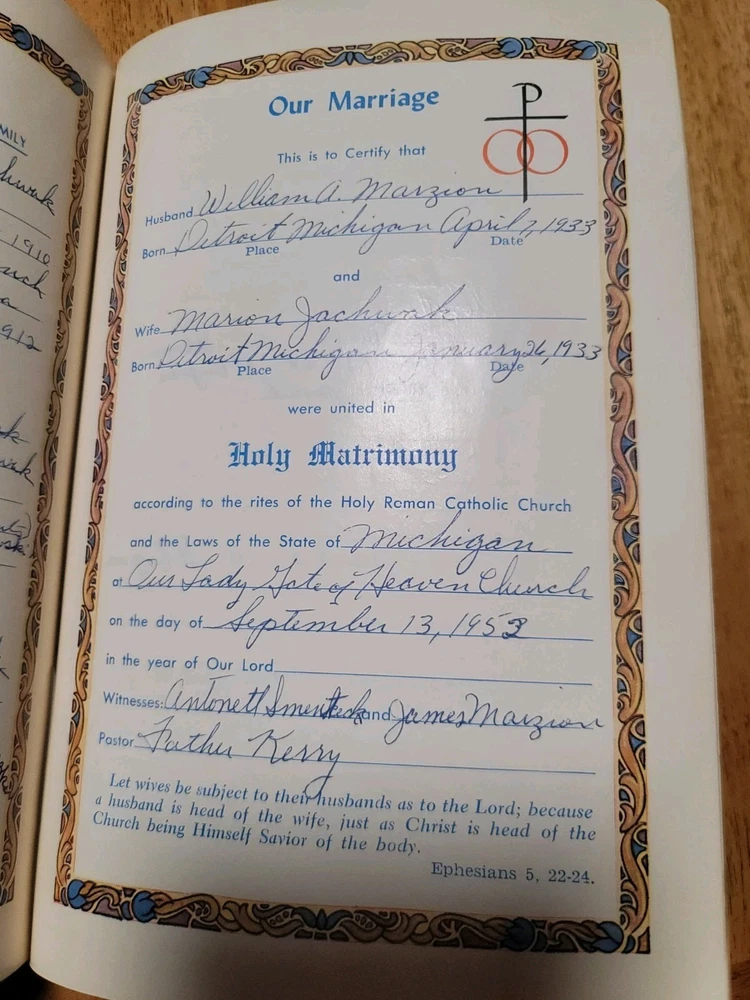 MILY
1910
912
Our Marriage
This is to Certify that
Husband William A. Marzion
Born Detroit Michigan April 7, 1933
Place Date
and
Wife Marion Jachwak
Born Detroit Michigan January 26, 1933
Place Date
were united in
Holy Matrimony
according to the rites of the Holy Roman Catholic Church
and the Laws of the State of Michigan
at Our Lady Gate of Heaven Church
on the day of September 13, 1953
in the year of Our Lord
Witnesses: and James Marzion
Pastor Father Kerry
Let wives be subject to their husbands as to the Lord; because
a husband is head of the wife, just as Christ is head of the
Church being Himself Savior of the body.
Ephesians 5, 22-24.